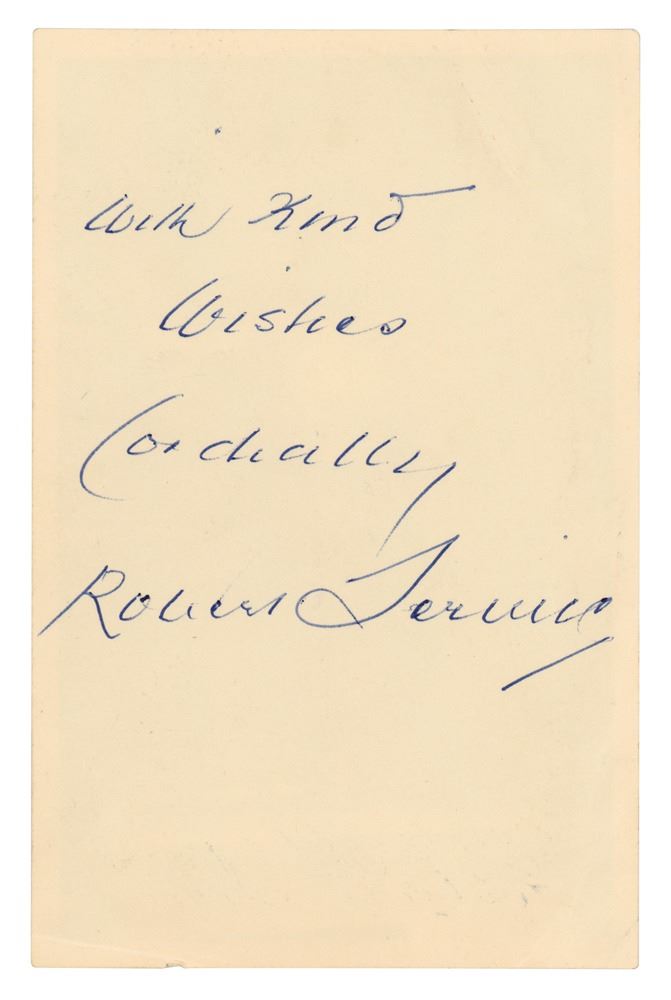 With Kind
Wishes
Cordially
Robert Service